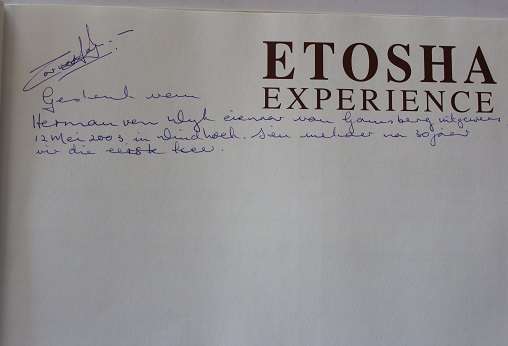 ETOSHA
EXPERIENCE
Geskenk
Herman van Wyk eienaar van Gamsberg
12 Mei 2003 in Windhoek. Sien mekaar na 30 jaar
vir die eerste keer.